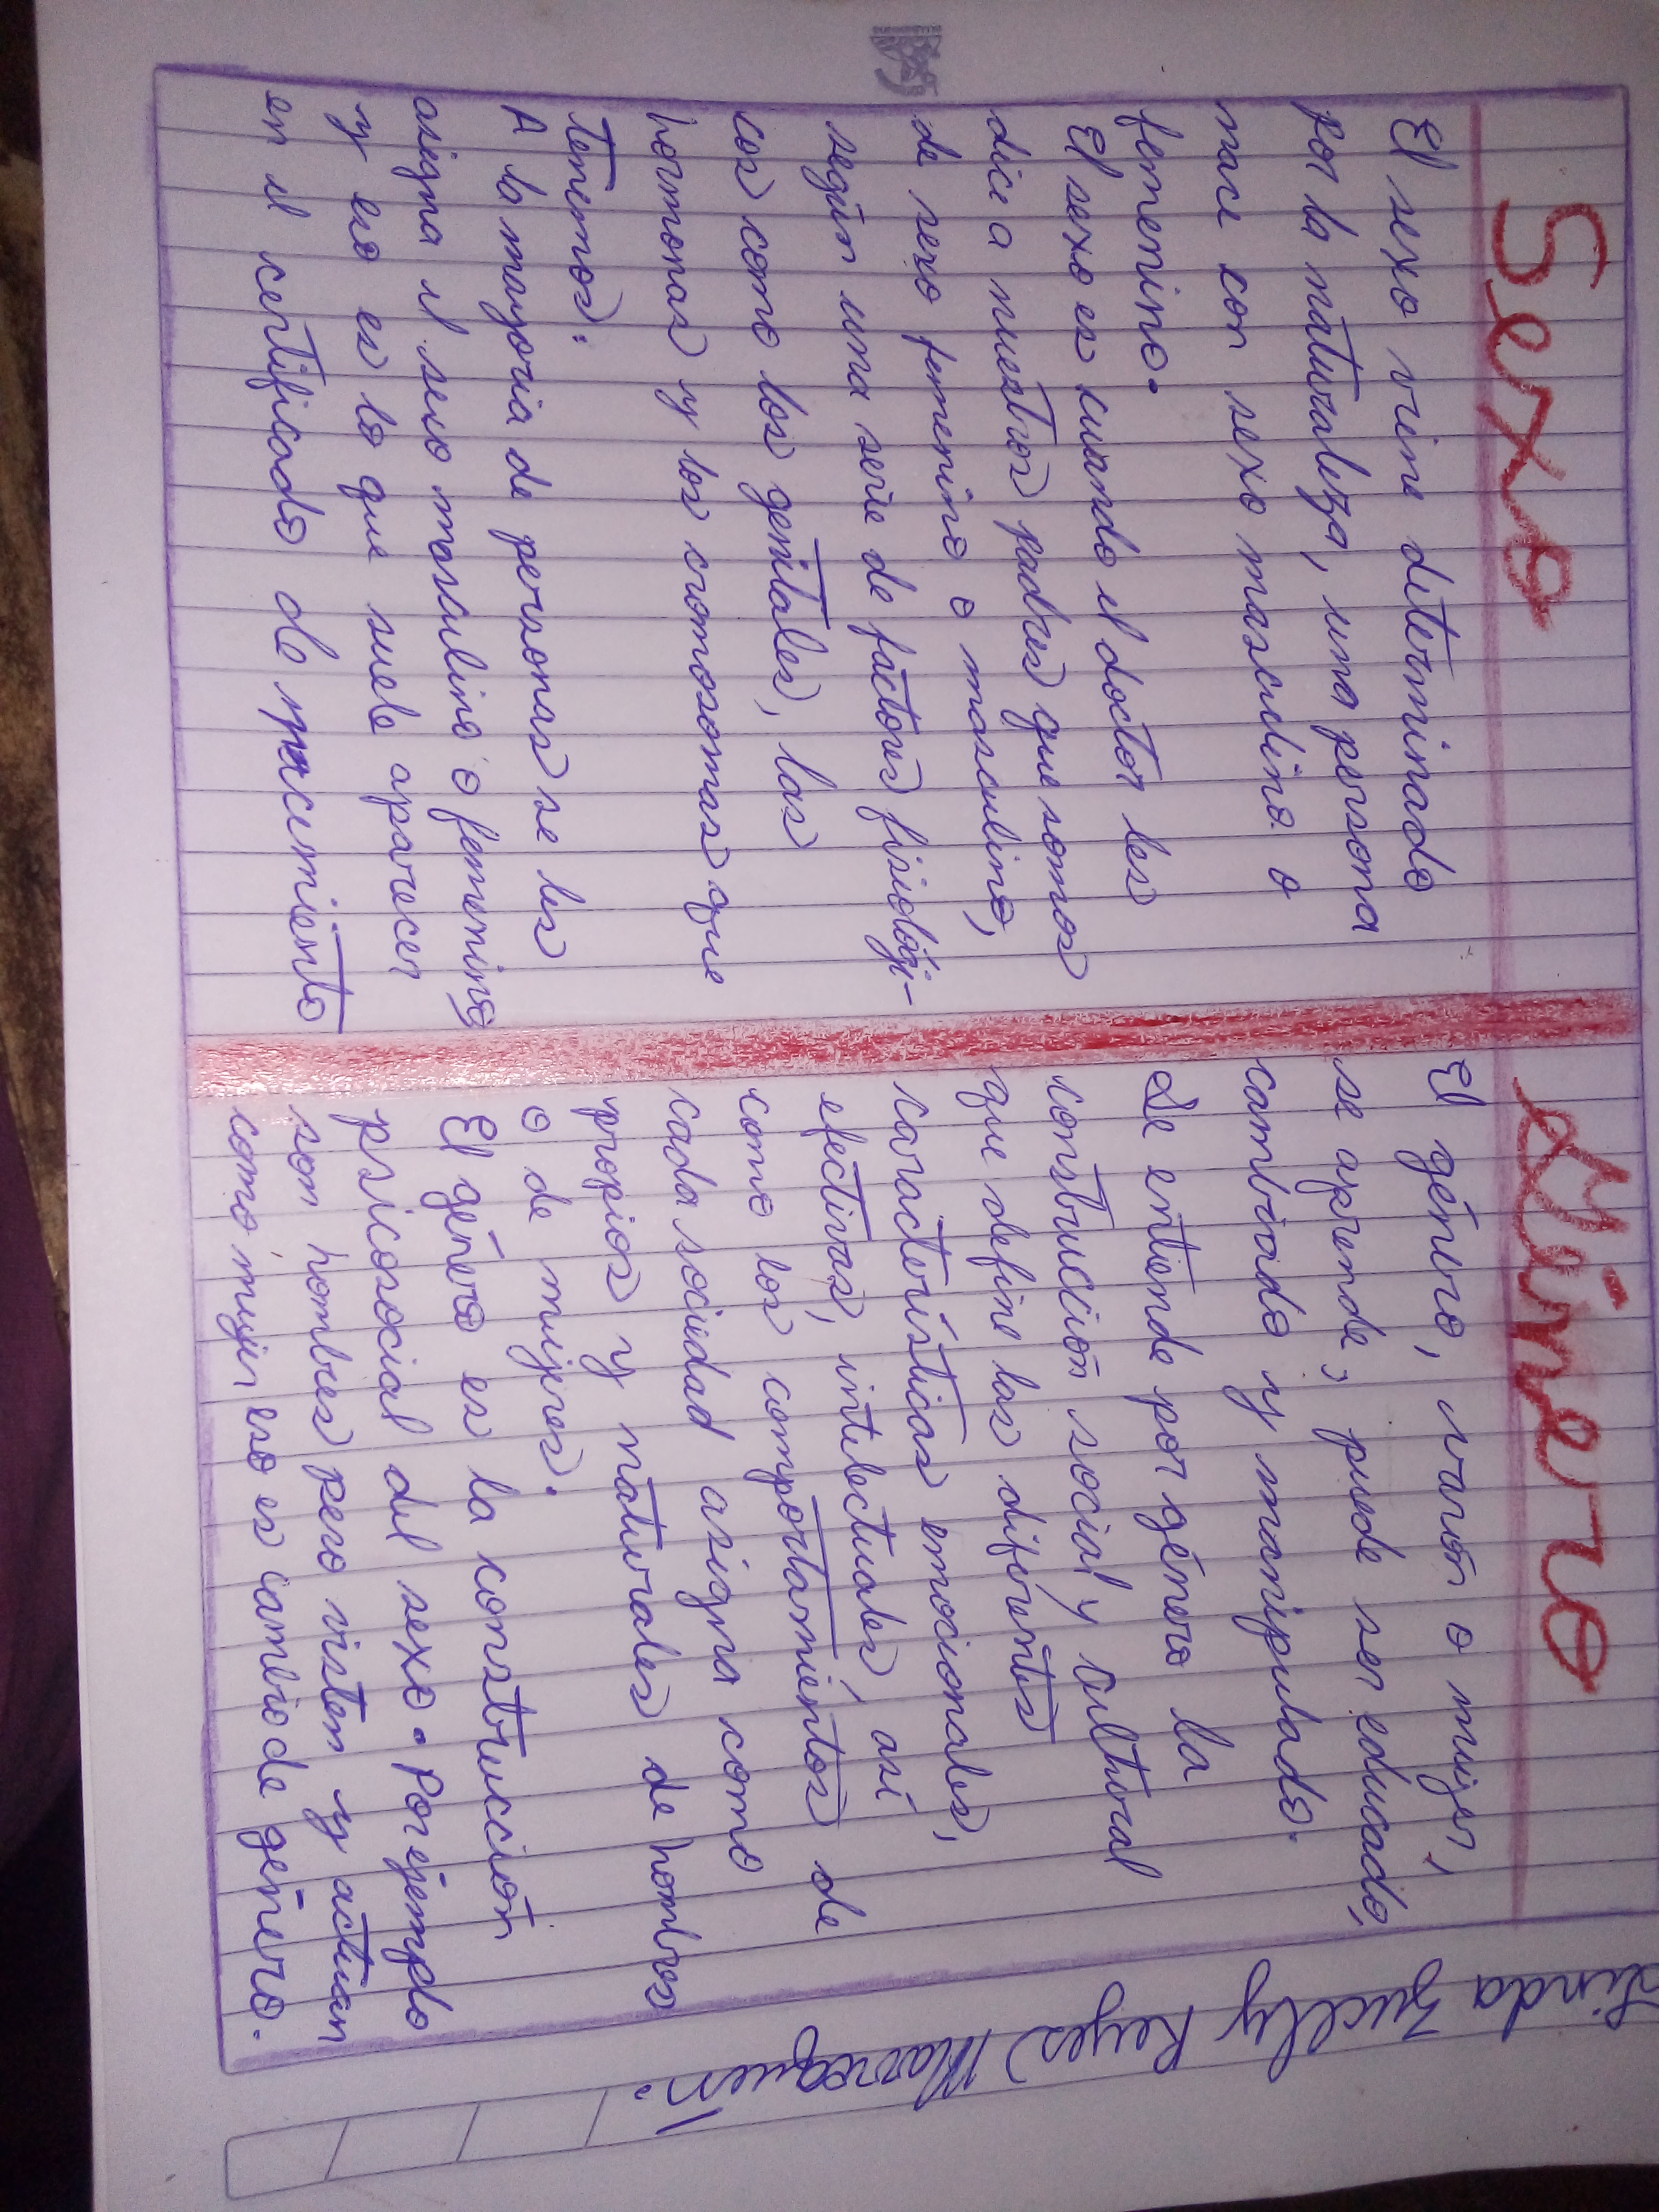 Sexo
El sexo viene determinado
por la naturaleza, una persona
nace con sexo masculino o
femenino.
El sexo es cuando el doctor les
dice a nuestros padres que somos
de sexo femenino o masculino,
según una serie de factores fisiológi-
cos como los genitales, las
hormonas y los cromosomas que
tenemos.
A la mayoria de personas se les
asigna el sexo masculino o femenino
y eso es lo que suele aparecer
en el certificado de nacimiento
Género
El género, varón o mujer,
se aprende, puede ser educado,
cambiado y manipulado.
Se entiende por género la
construcción social y cultural
que define las diferentes
características emocionales,
efectivas, intelectuales, así
como los comportamientos de
cada sociedad asigna como
propios y naturales de hombres
o de mujeres.
El género es la construcción
psicosocial del sexo. Por ejemplo
son hombres pero visten y actuan
como mujer eso es cambio de género.
Linda Zucely Reyes Marroquin.